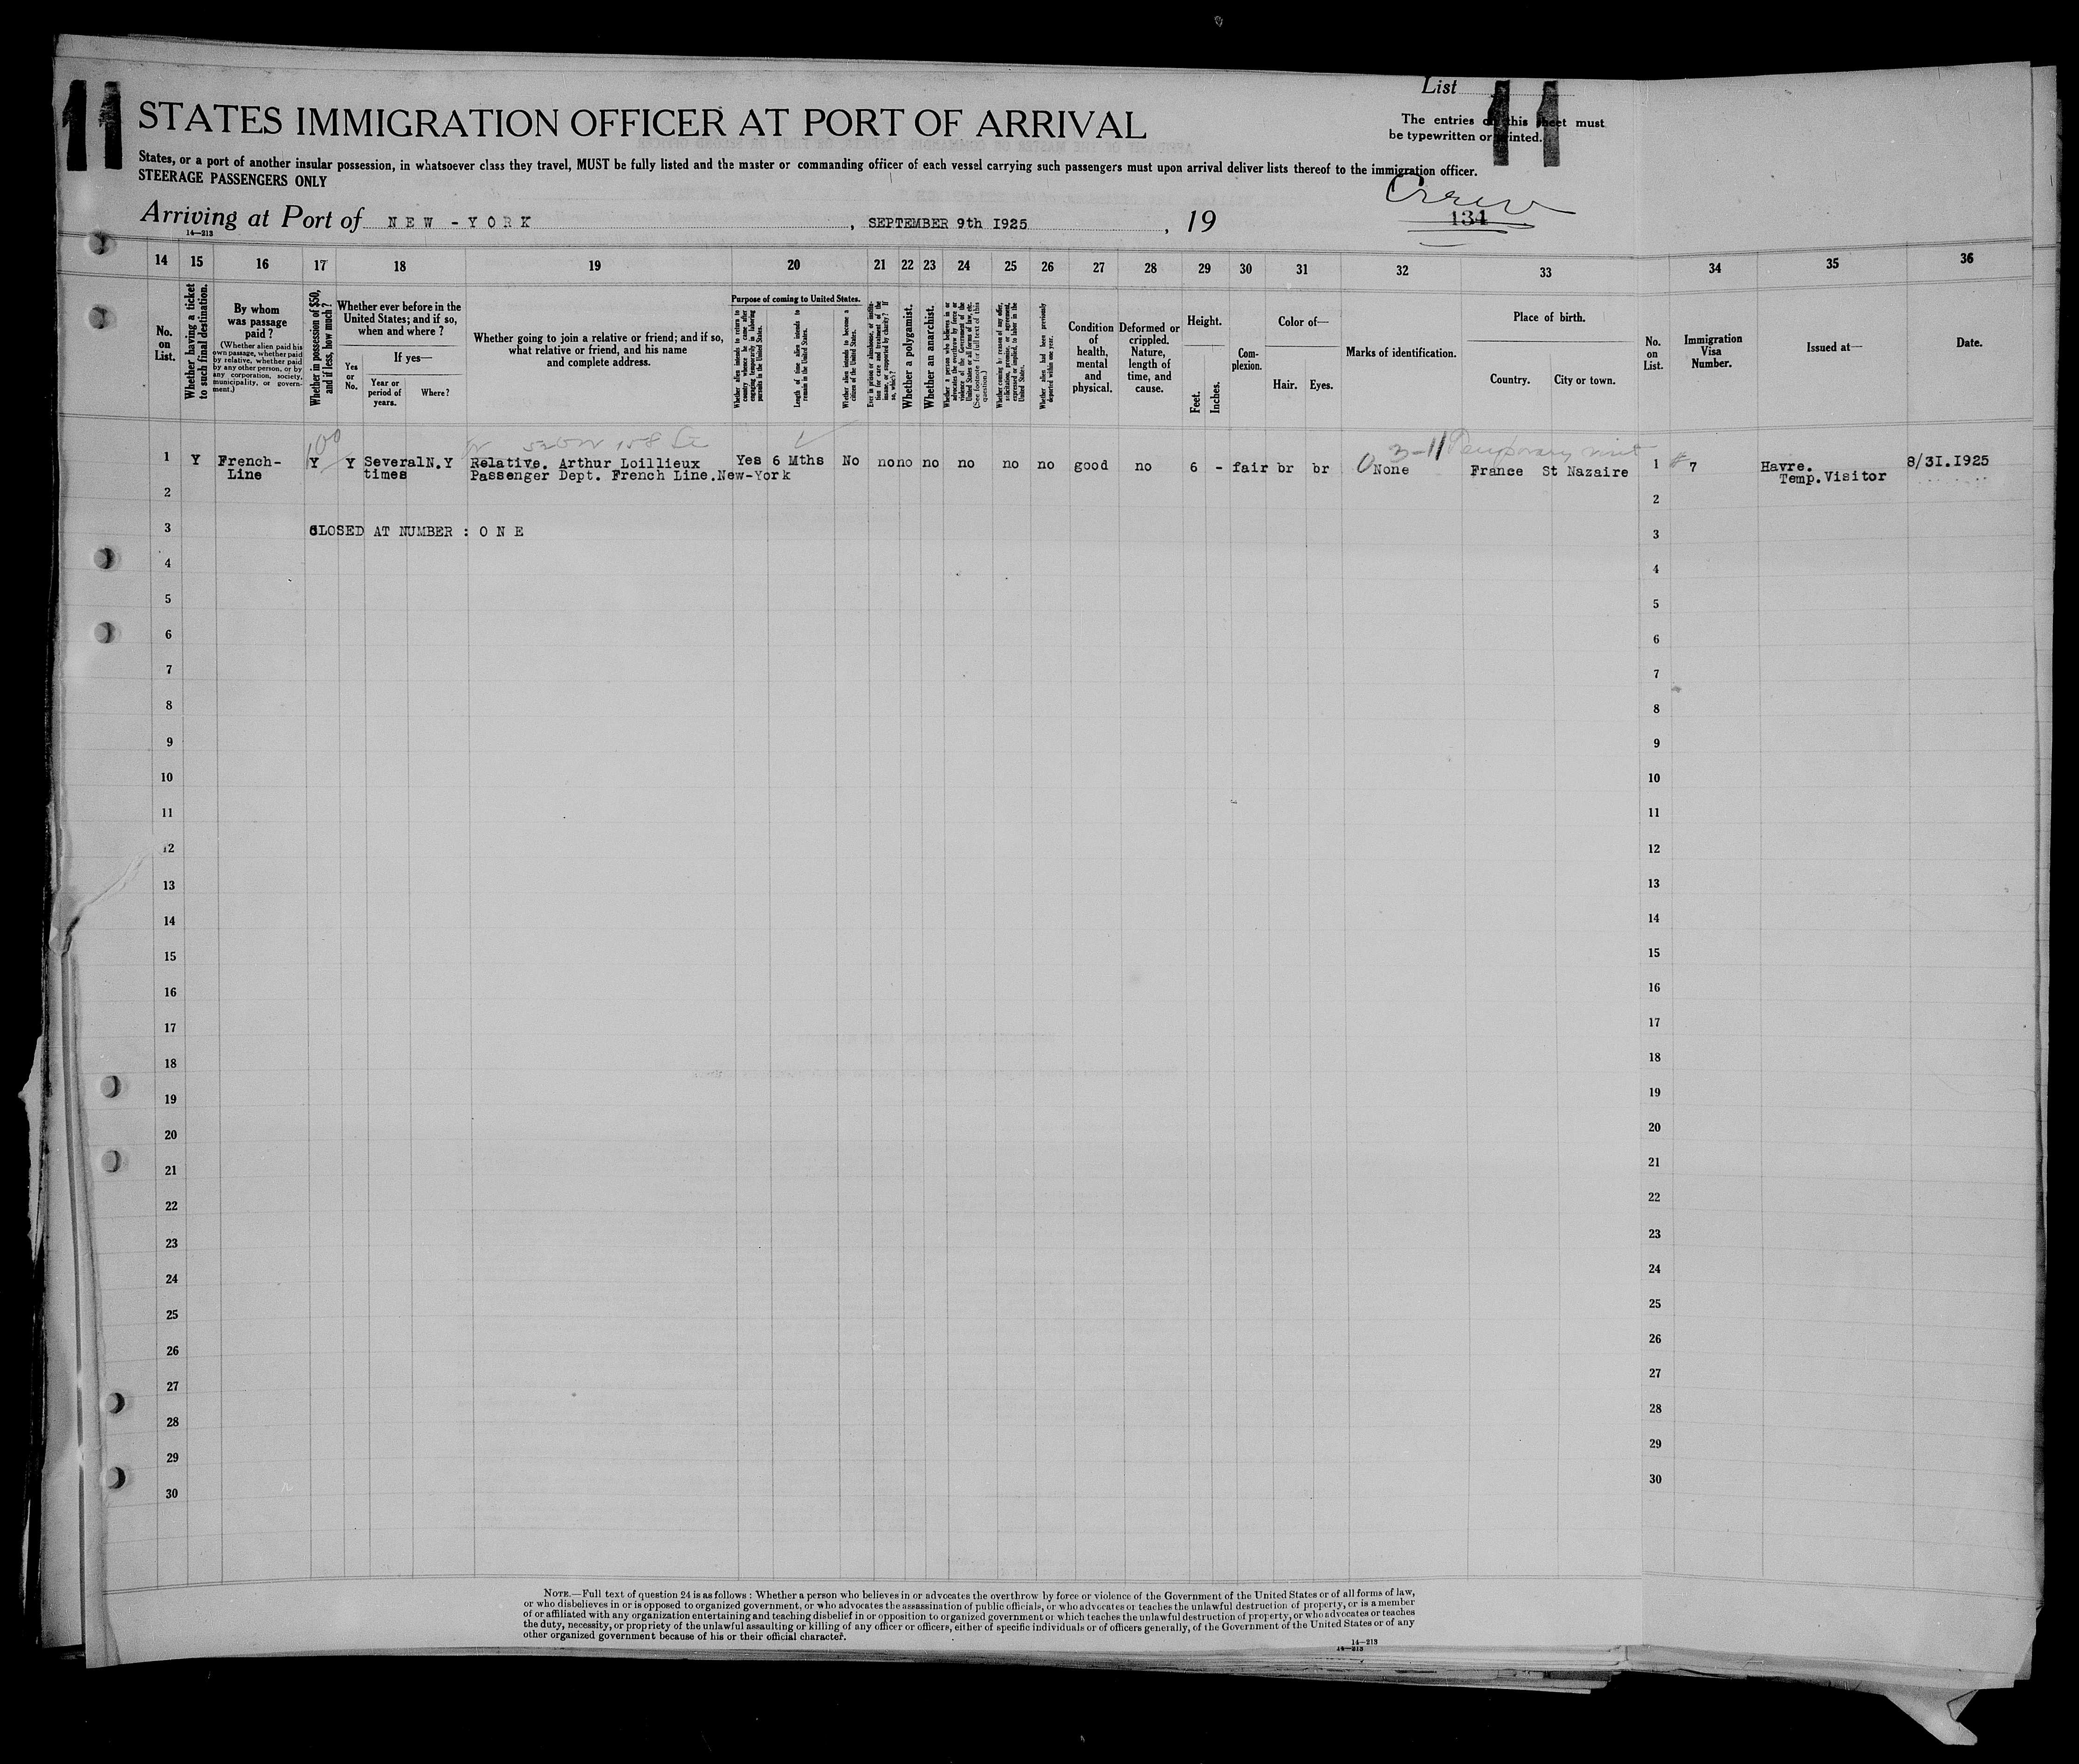 11
List 11
STATES IMMIGRATION OFFICER AT PORT OF ARRIVAL
The entries on this sheet must
be typewritten or printed.
States, or a port of another insular possession, in whatsoever class they travel, MUST be fully listed and the master or commanding officer of each vessel carrying such passengers must upon arrival deliver lists thereof to the immigration officer.
STEERAGE PASSENGERS ONLY
Crew
134
Arriving at Port of NEW-YORK, SEPTEMBER 9th 1925, 19
14—213
14 15 16 17 18 19 20 21 22 23 24 25 26 27 28 29 30 31 32 33 34 35 36
No. on List.
Whether having a ticket to such final destination.
By whom was passage paid?
(Whether alien paid his own passage, whether paid by relative, whether paid by any other person, or by any corporation, society, municipality, or government.)
Whether in possession of $50, and if less, how much?
Whether ever before in the United States; and if so, when and where?
Yes or No.
If yes—
Year or period of years.
Where?
Whether going to join a relative or friend; and if so, what relative or friend, and his name and complete address.
Purpose of coming to United States.
Whether alien intends to return to country whence he came after engaging temporarily in laboring pursuits in the United States.
Length of time alien intends to remain in the United States.
Whether alien intends to become a citizen of the United States.
Ever in prison or almshouse, or institution for care and treatment of the insane, or supported by charity? If so, which?
Whether a polygamist.
Whether an anarchist.
Whether a person who believes in or advocates the overthrow by force or violence of the Government of the United States or all forms of law, etc. (See footnote for full text of this question.)
Whether coming by reason of any offer, solicitation, promise, or agreement, expressed or implied, to labor in the United States.
Whether alien had been previously deported within one year.
Condition of health, mental and physical.
Deformed or crippled. Nature, length of time, and cause.
Height.
Feet. Inches.
Complexion.
Color of—
Hair. Eyes.
Marks of identification.
Place of birth.
Country. City or town.
No. on List.
Immigration Visa Number.
Issued at—
Date.
100 158 St 3-11 Temporary visit
1 Y French- Y Y Several N.Y Relative. Arthur Loillieux Yes 6 Mths No no no no no no no good no 6 - fair br br None France St Nazaire 1 # 7 Havre. 8/31.1925
Line times Passenger Dept. French Line.New-York Temp.Visitor
2 2
3 CLOSED AT NUMBER : O N E 3
4 4
5 5
6 6
7 7
8 8
9 9
10 10
11 11
12 12
13 13
14 14
15 15
16 16
17 17
18 18
19 19
20 20
21 21
22 22
23 23
24 24
25 25
26 26
27 27
28 28
29 29
30 30
NOTE.—Full text of question 24 is as follows: Whether a person who believes in or advocates the overthrow by force or violence of the Government of the United States or of all forms of law,
or who disbelieves in or is opposed to organized government, or who advocates the assassination of public officials, or who advocates or teaches the unlawful destruction of property, or is a member
of or affiliated with any organization entertaining and teaching disbelief in or opposition to organized government or which teaches the unlawful destruction of property, or who advocates or teaches
the duty, necessity, or propriety of the unlawful assaulting or killing of any officer or officers, either of specific individuals or of officers generally, of the Government of the United States or of any
other organized government because of his or their official character.
14—213
14—213